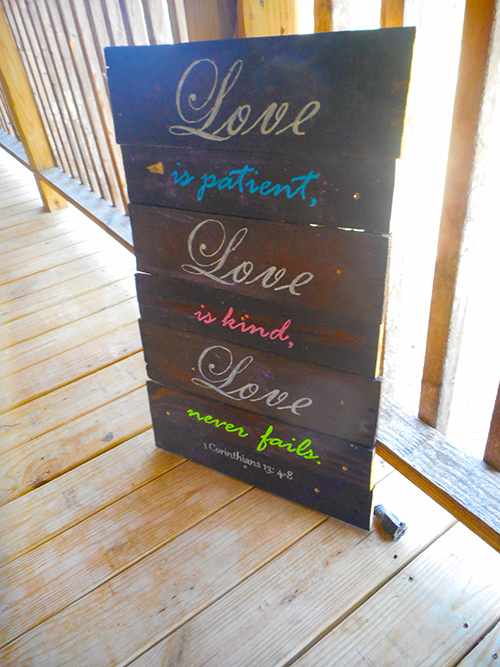 Love
is patient,
Love
is kind,
Love
never fails.
1 Corinthians 13: 4-8